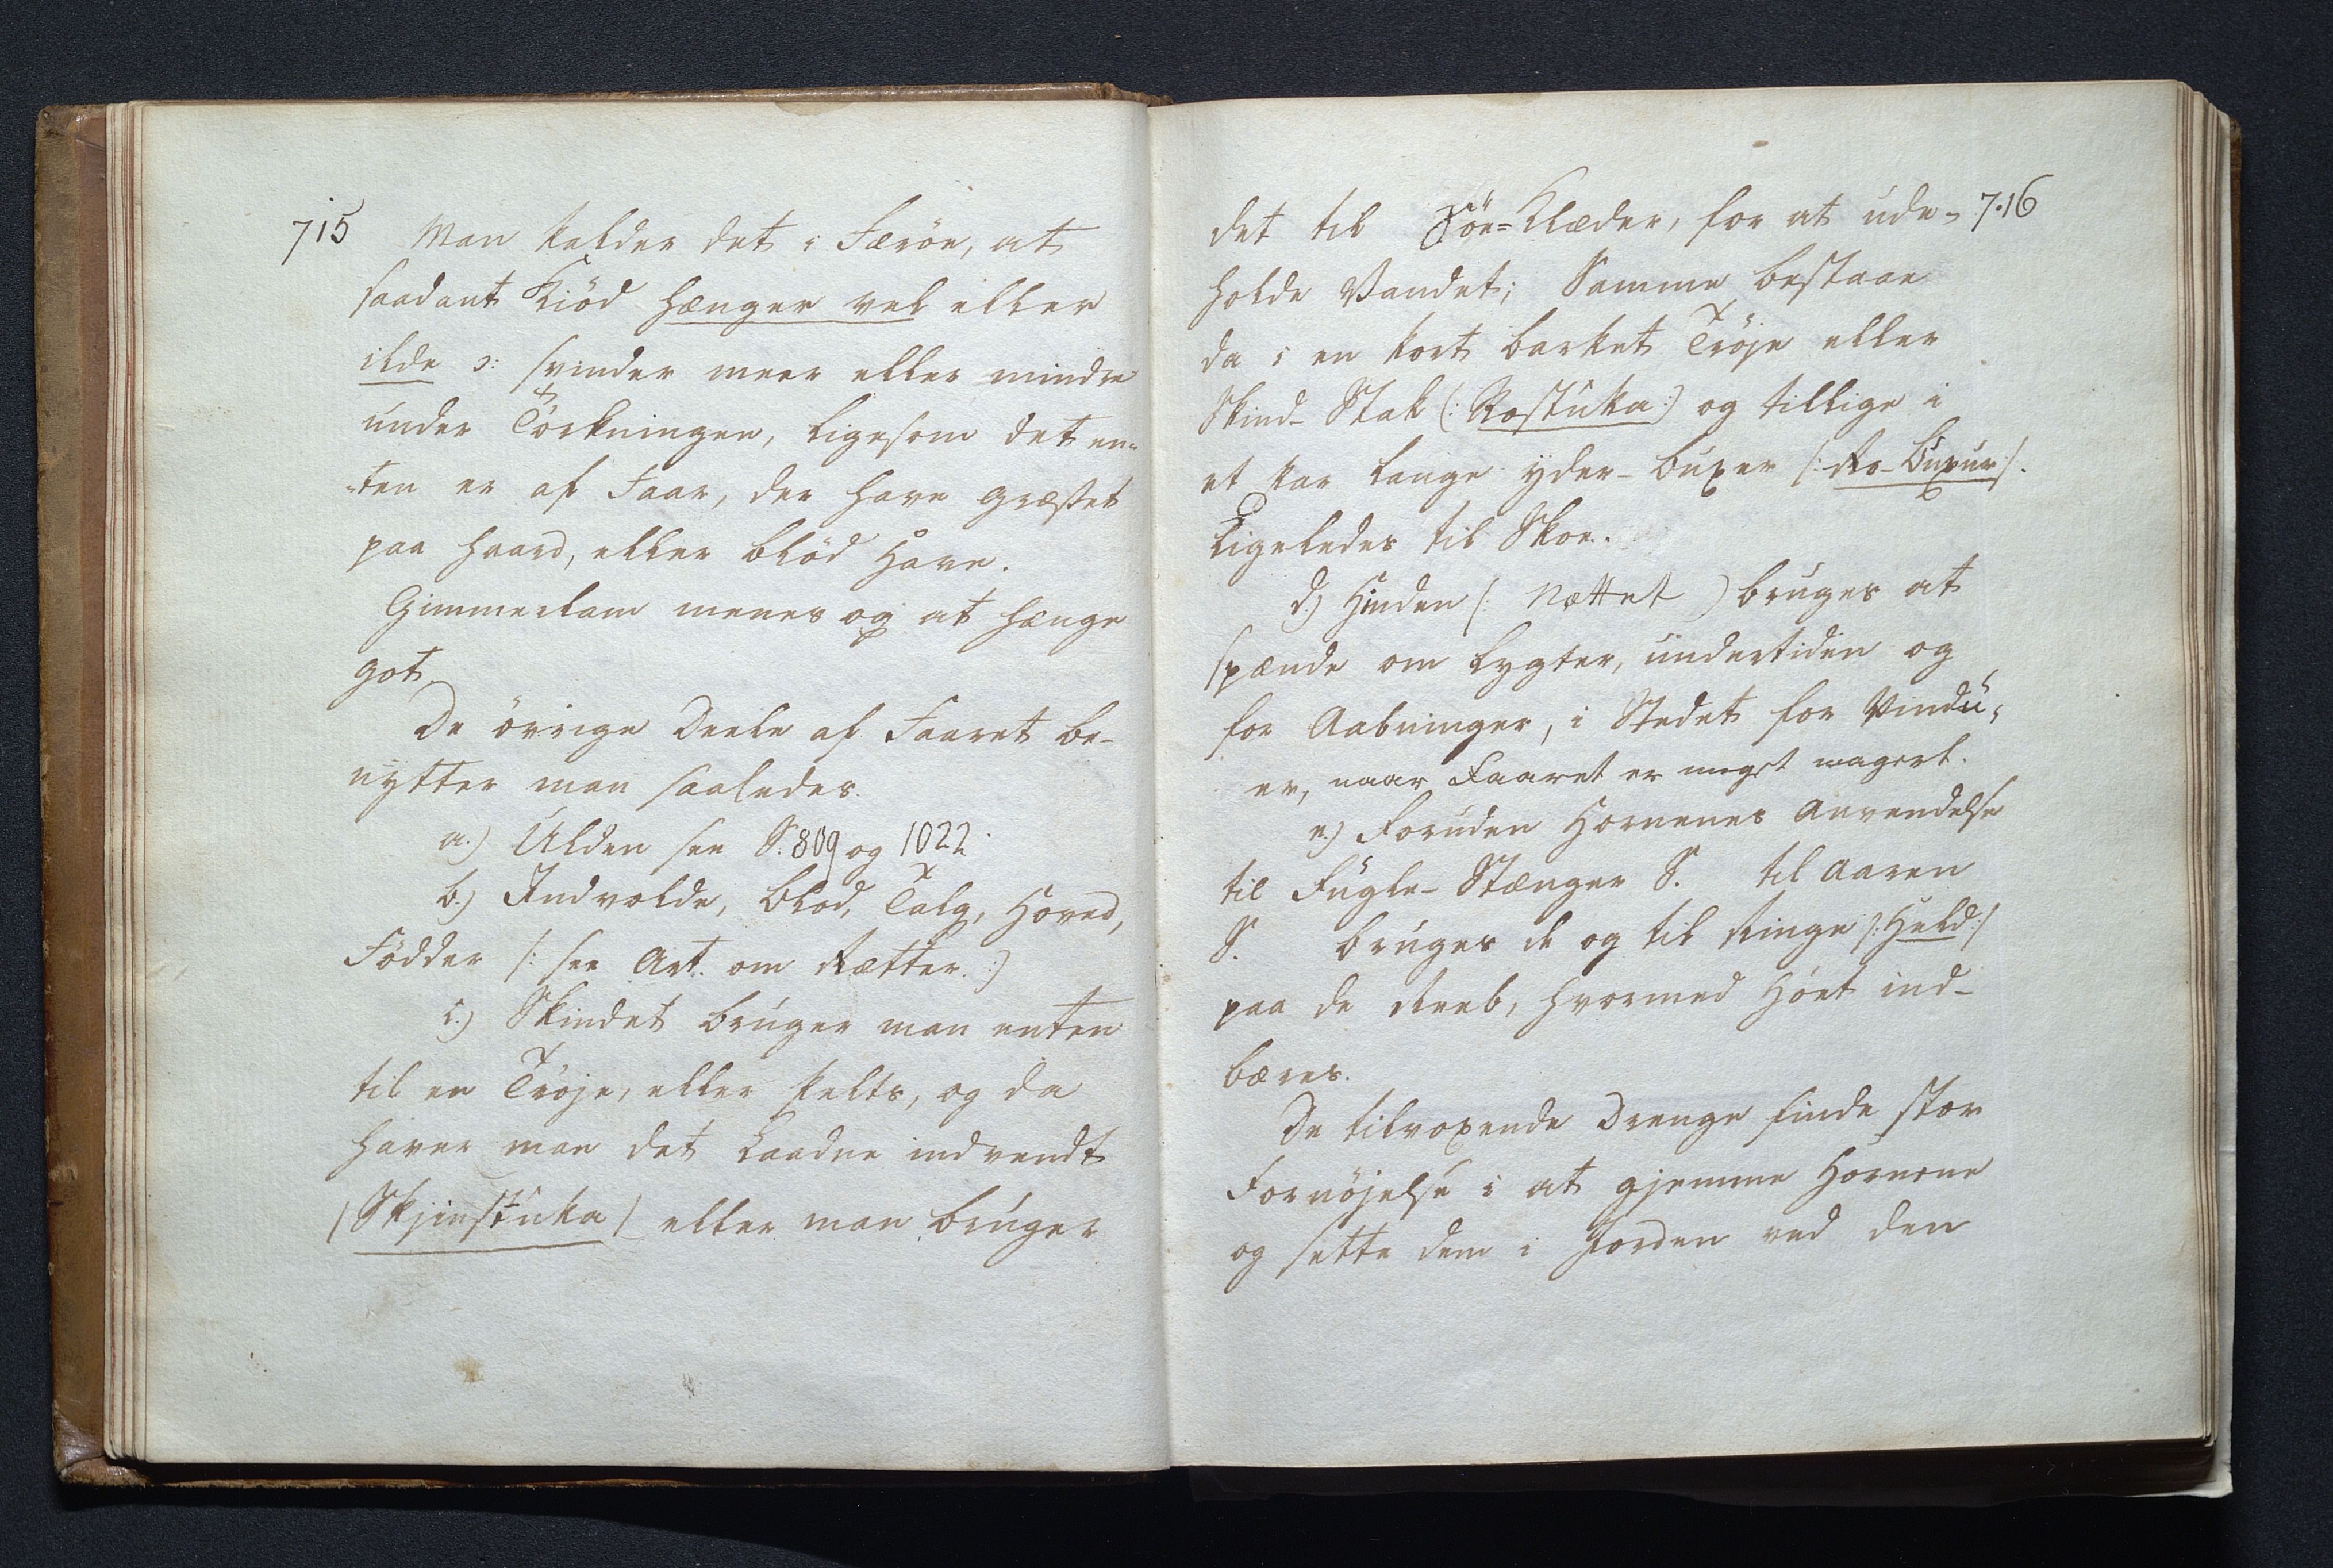 715
Man kalder det i Færöe, at
saadant Kiöd hænger vel eller
ilde ɔ: svinder meer eller mindre
under Törkningen, ligesom det en=
=ten er af Faar, der have græsset
paa haard, eller blöd Have.
Gimmerlam menes og at hænge
got.
De övrige Deele af Faaret be-
nytter man saaledes.
a.) Ulden see S. 809 og 1022.
b.) Indvolde, Blod, Talg, Hoved,
Födder /: see Art. om Rætter. :)
c.) Skindet bruger man enten
til en Tröje, eller Pelts, og da
haver man det Laadne indvendt
/Skjinstuka/ eller man bruger
716
det til Söe=Klæder, for at ude=
holde Vandet; Samme bestaae
da i en kort barket Tröje eller
Skind-Stak (: Rostuka :) og tillige i
et Par lange yder-Buxer /: Ro-Buxur :/.
Ligeledes til Skoe.
d.) Hinden (: Nættet ) bruges at
spænde om Lygter, undertiden og
for Aabninger, i Stedet for Vindu=
er, naar Faaret er meget magert.
e.) Foruden Hornenes Anvendelse
til Fugle-Stænger S. til Aaren
S. bruges de og til Ringe /: Held :/
paa de Reeb, hvormed Höet ind-
bæres.
De tilvoxende Drenge finde stor
Fornöjelse i at gjemme Hornene
og sette dem i Jorden ved den